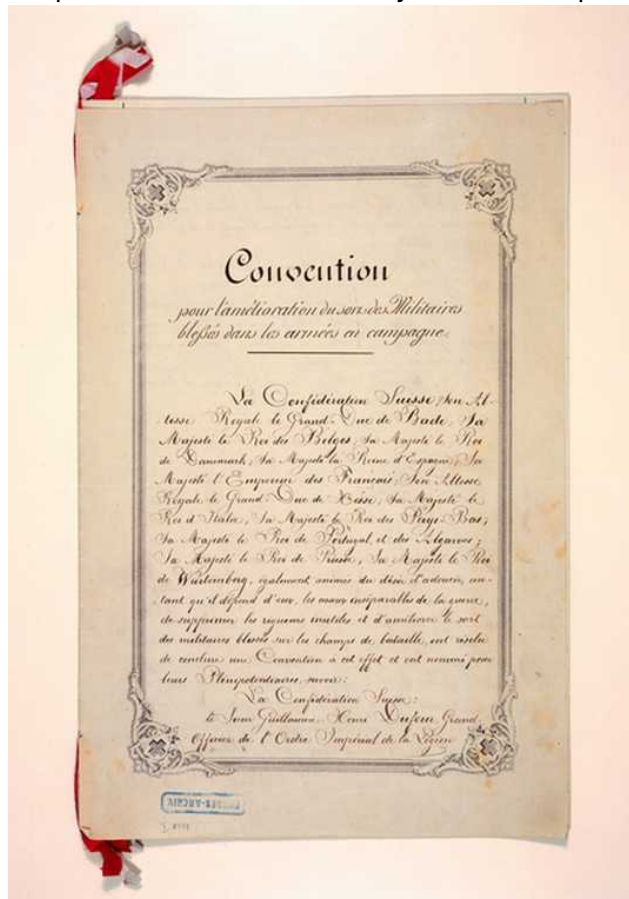 Convention
pour l'amélioration du sort des Militaires
blessés dans les armées en campagne.
La Confédération Suisse, Son Al-
tesse Royale le Grand-Duc de Bade, Sa
Majesté le Roi des Belges, Sa Majesté le Roi
de Danemark, Sa Majesté la Reine d'Espagne, Sa
Majesté l'Empereur des Français, Son Altesse
Royale le Grand-Duc de Hesse, Sa Majesté le
Roi d'Italie, Sa Majesté le Roi des Pays-Bas,
Sa Majesté le Roi de Portugal et des Algarves,
Sa Majesté le Roi de Prusse, Sa Majesté le Roi
de Würtemberg, également animés du désir d'adoucir, au-
tant qu'il dépend d'eux, les maux inséparables de la guerre,
de supprimer les rigueurs inutiles et d'améliorer le sort
des militaires blessés sur les champs de bataille, ont résolu
de conclure une Convention à cet effet et ont nommé pour
leurs Plénipotentiaires, savoir:
La Confédération Suisse:
le Sieur Guillaume Henri Dufour, Grand
Officier de l'Ordre Impérial de la Légion
BUNDES-ARCHIV